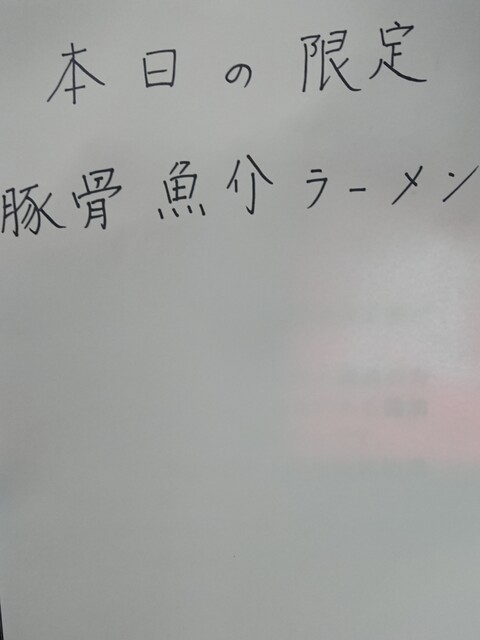 本日の限定
豚骨魚介ラーメン